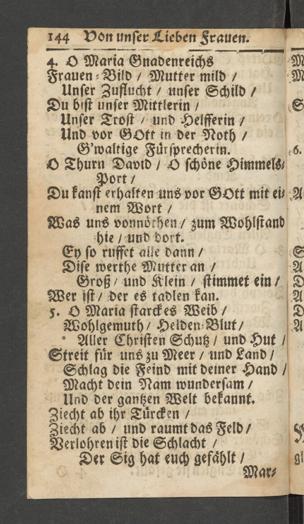 144 Von unser Lieben Frauen.
4. O Maria Gnadenreichs
Frauen-Bild / Mutter mild /
Unser Zuflucht / unser Schild /
Du bist unser Mittlerin /
Unser Trost / und Helfferin /
Und vor GOtt in der Noth /
G'waltige Fürsprecherin.
O Thurn David / O schöne Himmels-
Port /
Du kanst erhalten uns vor GOtt mit ei-
nem Wort /
Was uns vonnöthen / zum Wohlstand
hie / und dort.
Ey so ruffet alle dann /
Dise werthe Mutter an /
Groß / und Klein / stimmet ein /
Wer ist / der es tadlen kan.
5. O Maria starckes Weib /
Wohlgemuth / Helden-Blut /
Aller Christen Schutz / und Hut /
Streit für uns zu Meer / und Land /
Schlag die Feind mit deiner Hand /
Macht dein Nam wundersam /
Und der gantzen Welt bekannt.
Ziecht ab ihr Türcken /
Ziecht ab / und raumt das Feld /
Verlohren ist die Schlacht /
Der Sig hat euch gefählt /
Mar-